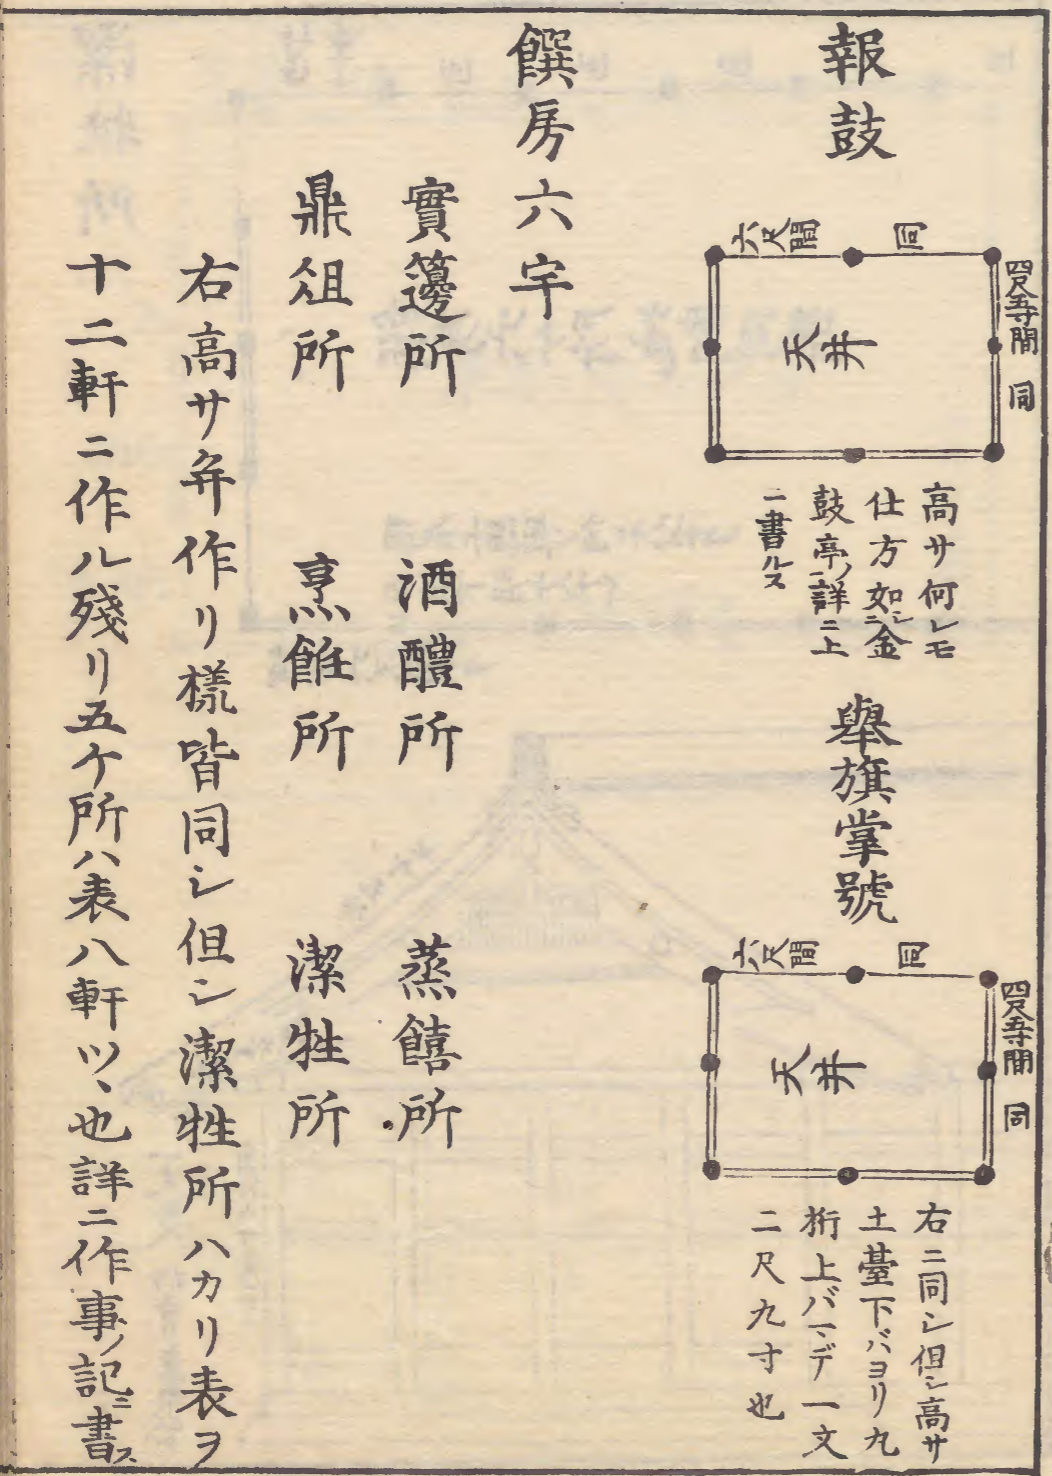 報鼓
六尺間 同
四尺五寸間 同
天井
高サ何レモ
仕方如シ金
鼓亭ノ詳ニ上
ニ書ルス
舉旗掌號
六尺間 同
四尺五寸間 同
天井
右ニ同シ但シ高サ
土臺下バヨリ九
桁上バマデ一丈
二尺九寸也
饌房六宇
實籩所 酒醴所 蒸饎所
鼎俎所 烹飪所 潔牲所
右高サ弁作リ樣皆同シ但シ潔牲所ハカリ表ヲ
十二軒ニ作ル殘リ五ケ所ハ表八軒ツヽ也詳ニ作事ノ記ニ書ス